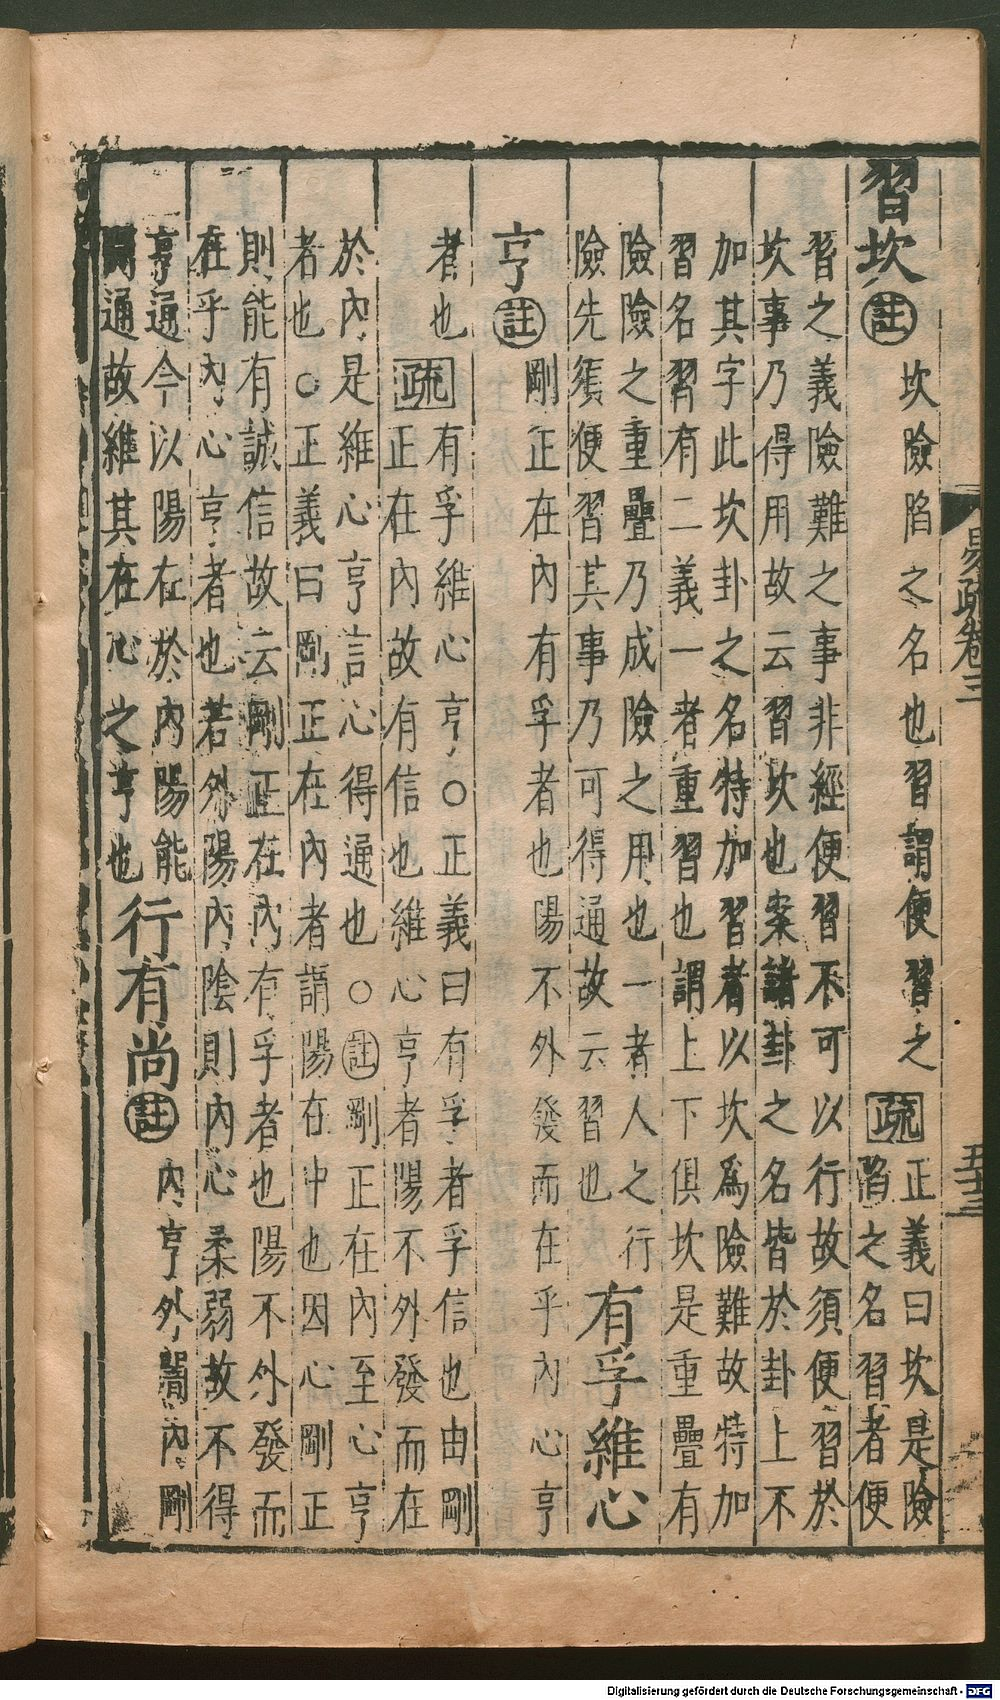 易疏卷三
五十三
習坎註
坎險陷之名也習謂便習之
疏
正義曰坎是險
陷之名習者便
習之義險難之事非經便習不可以行故須便習於
坎事乃得用故云習坎也案諸卦之名皆於卦上不
加其字此坎卦之名特加習者以坎爲險難故特加
習名習有二義一者重習也謂上下俱坎是重疊有
險險之重疊乃成險之用也一者人之行
險先須便習其事乃可得通故云習也
有孚維心
亨註
剛正在內有孚者也陽不外發而在乎內心亨
者也
疏
有孚維心亨○正義曰有孚者孚信也由剛
正在內故有信也維心亨者陽不外發而在
於內是維心亨言心得通也○註剛正在內至心亨
者也○正義曰剛正在內者謂陽在中也因心剛正
則能有誠信故云剛正在內有孚者也陽不外發而
在乎內心亨者也若外陽內陰則內心柔弱故不得
亨通今以陽在於內陽能
開通故維其在心之亨也
行有尚註
內亨外闇內剛
Digitalisierung gefördert durch die Deutsche Forschungsgemeinschaft - DFG